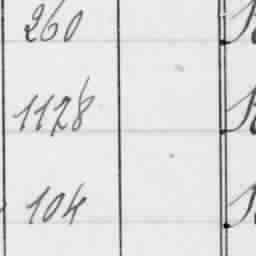 260
1128
104